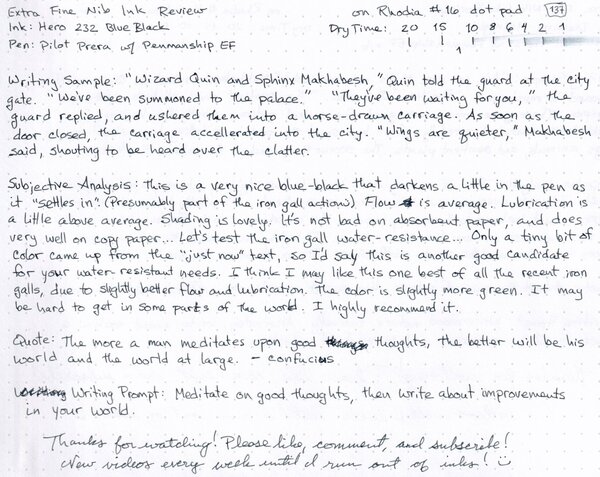 Extra Fine Nib Ink Review on Rhodia #16 dot pad 137
Ink: Hero 232 Blue Black Dry Time: 20 15 10 8 6 4 2 1
Pen: Pilot Prera w/ Penmanship EF
Writing Sample: "Wizard Quin and Sphinx Makhabesh," Quin told the guard at the city
gate. "We've been summoned to the palace." "They've been waiting for you," the
guard replied, and ushered them into a horse-drawn carriage. As soon as the
door closed, the carriage accellerated into the city. "Wings are quieter," Makhabesh
said, shouting to be heard over the clatter.
Subjective Analysis: This is a very nice blue-black that darkens a little in the pen as
it "settles in". (Presumably part of the iron gall action) Flow is average. Lubrication is
a little above average. Shading is lovely. It's not bad on absorbent paper, and does
very well on copy paper... Let's test the iron gall water-resistance... Only a tiny bit of
color came up from the "just now" text, so I'd say this is another good candidate
for your water-resistant needs. I think I may like this one best of all the recent iron
galls, due to slightly better flow and lubrication. The color is slightly more green. It may
be hard to get in some parts of the world. I highly recommend it.
Quote: The more a man meditates upon good thoughts, the better will be his
world and the world at large. - Confucius
Writing Prompt: Meditate on good thoughts, then write about improvements
in your world.
Thanks for watching! Please like, comment, and subscribe!
New videos every week until I run out of inks!